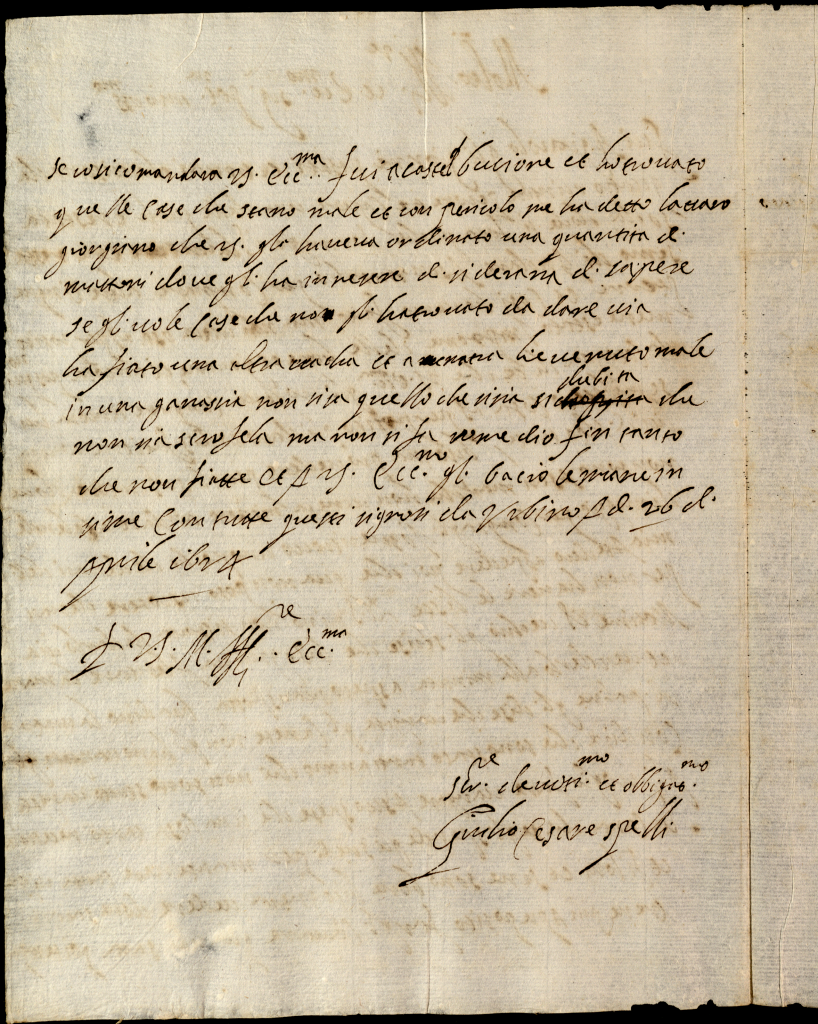 se cosi comandara v.s. Ecc.ma fui a castel bucione et ho trovato
quelle case che stano male et con pericolo me ha detto
giorgiano che v.s. gli haveva ordinato una quantita di
mattoni dove gli ha in nesere di siderana di sapere
se gli vole case che non gli ha trovato da dare via
ha fiato una altra vacha et a li e venuto male
in una ganassia non si sa quello che si sia si dubita che
non sia scrofela ma non si sa nome dio fin tanto
che non fiatte et a v.s. Ecc.mo gli bacio le mane in
sime con tutte questi signori da Urbino a di 26 di
Aprile
D v.s. M. Ill.re Ecc.ma
Ser.re devoti.mo et obbligat.mo
Giulio Cesare spelli